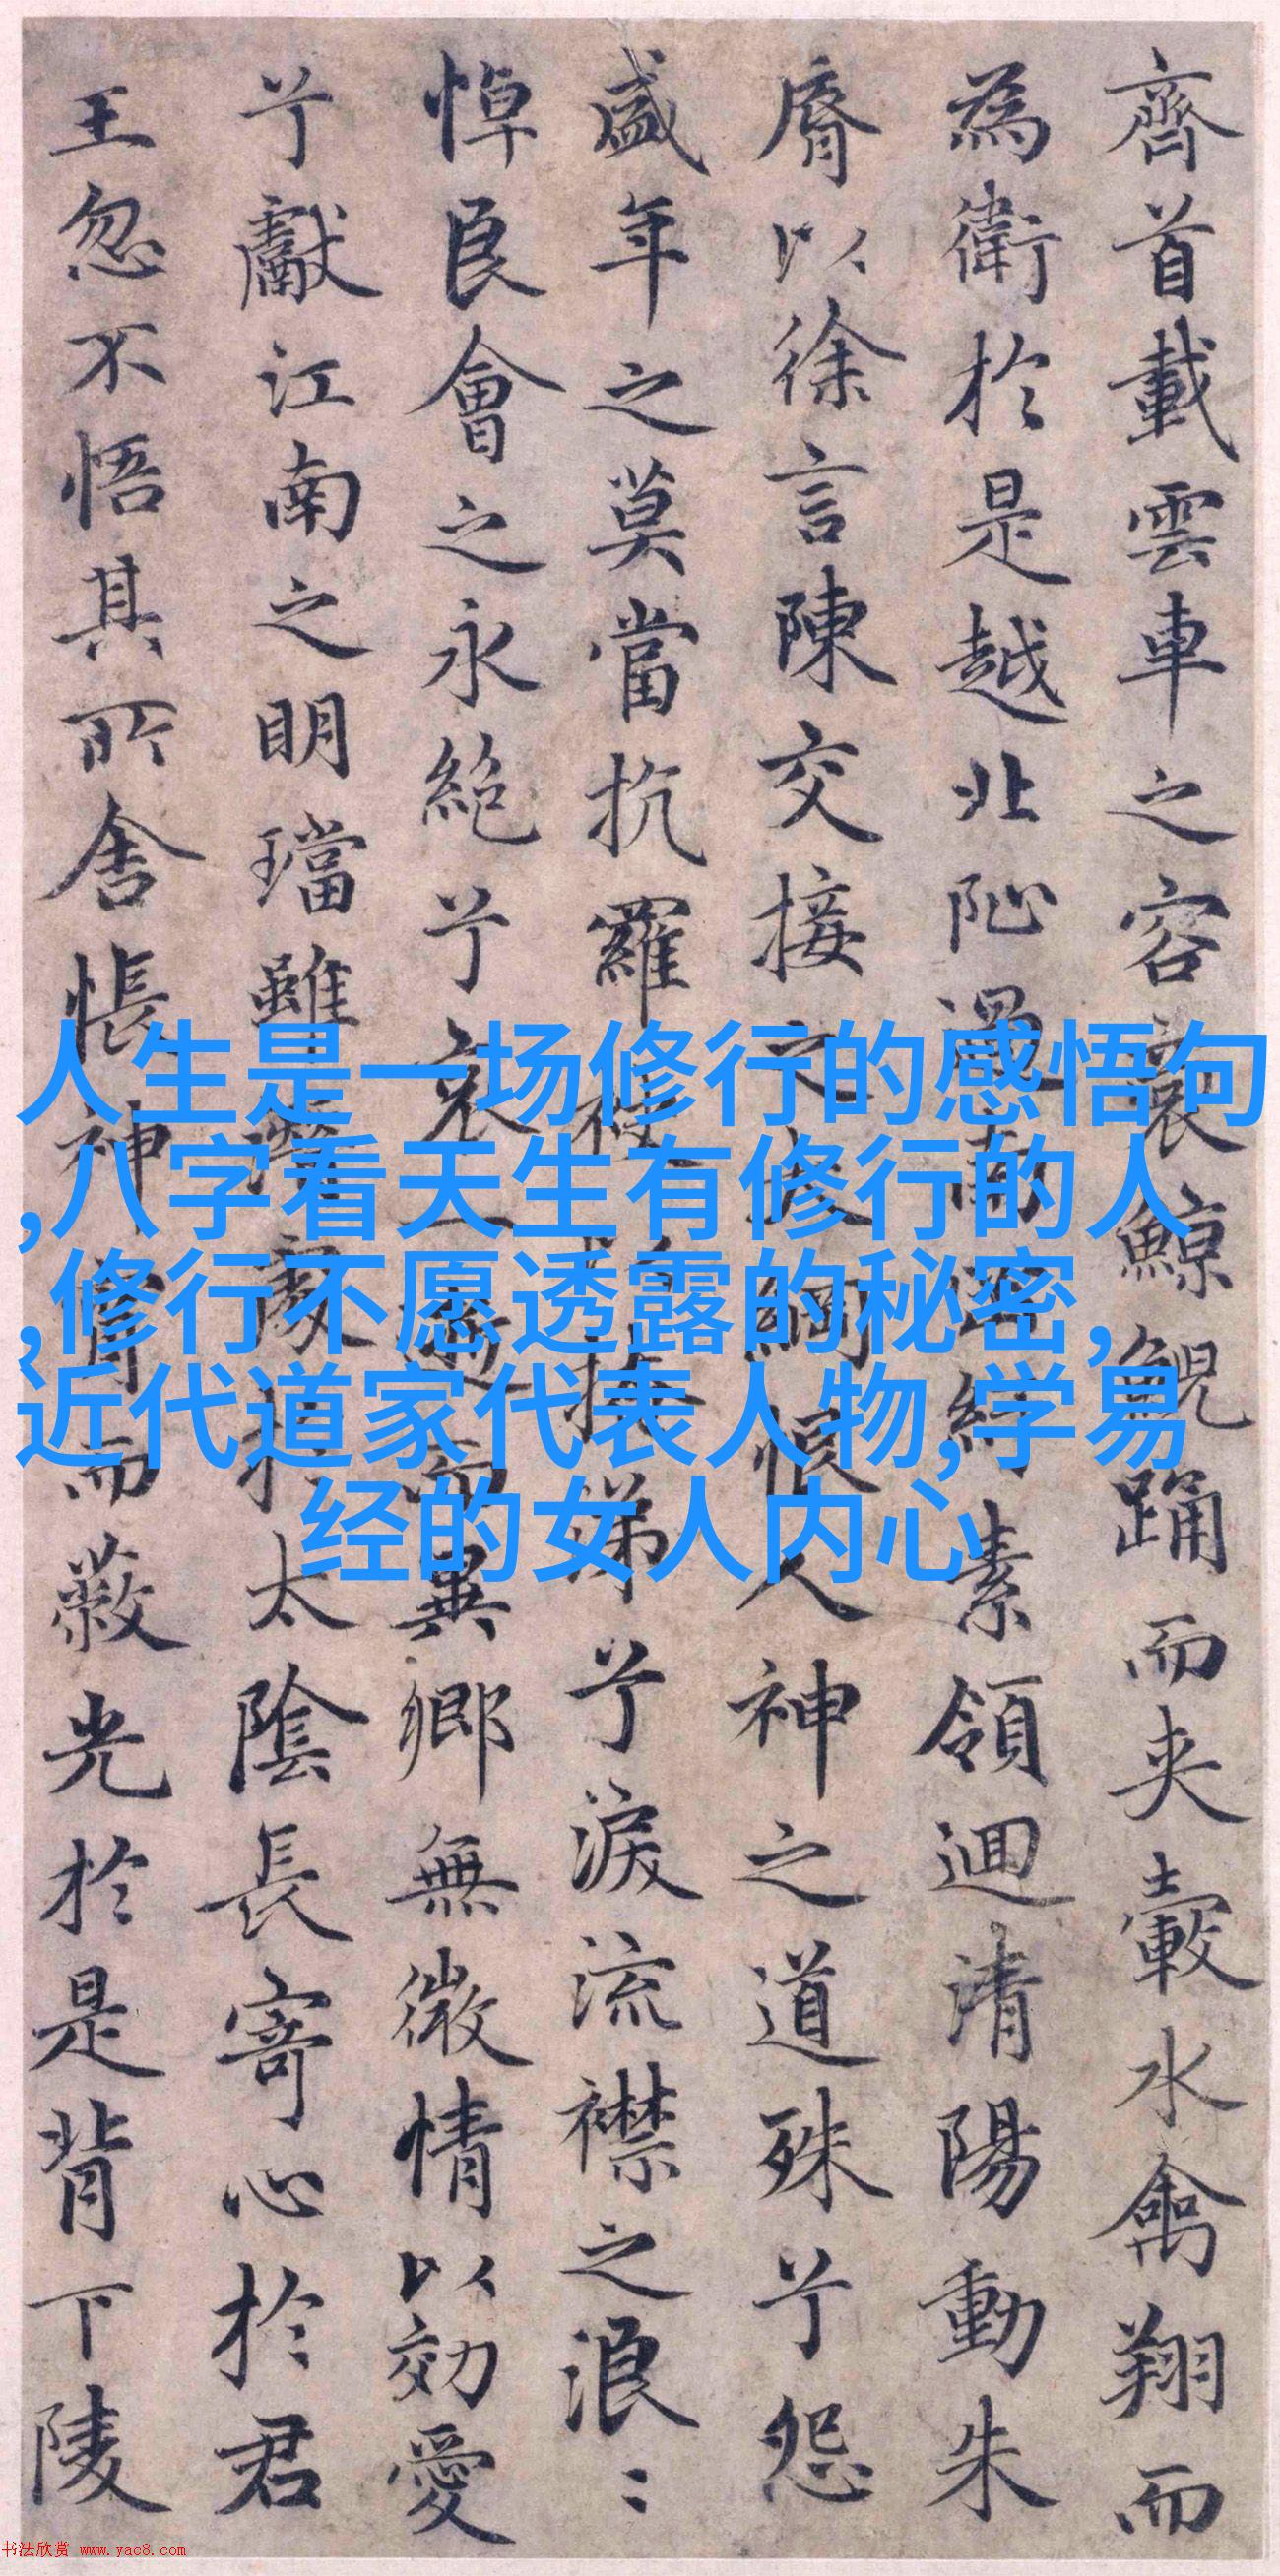 齊首載雲車之容裔鯨鯢踊而夾轂水禽翔而
為衛於是越北阯過南岡紆素領迴清陽動朱
脣以徐言陳交接之大綱恨人神之道殊兮怨
盛年之莫當抗羅袂掩涕兮淚流襟之浪〻
悼良會之永絕兮哀一逝而異鄉無微情以効愛
兮獻江南之明璫雖潛處於太陰長寄心於君
王忽不悟其所舍悵神宵而蔽光於是背下陵
人生是一场修行的感悟句
,八字看天生有修行的人
,修行不愿透露的秘密,
近代道家代表人物,学易
经的女人内心
书法欣赏 www.yac8.com